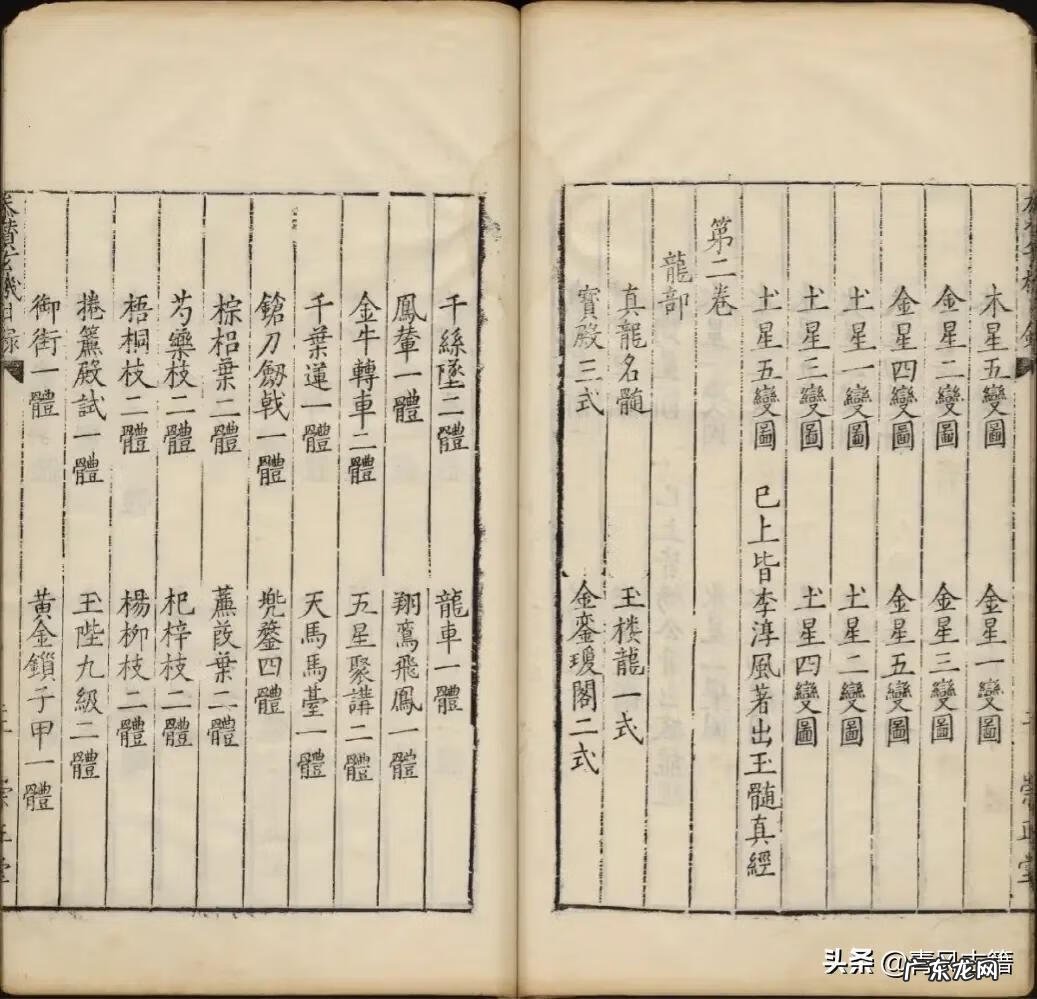 木星五變圖　金星一變圖
金星二變圖　金星三變圖
金星四變圖　金星五變圖
土星一變圖　土星二變圖
土星三變圖　土星四變圖
土星五變圖　已上皆李淳風著出玉髓真經
第二卷
龍部
真龍名髓　玉楼龍一式
寶殿三式　金鑾瓊閣二式
千絲墜二體　龍車一體
鳳輦一體　翔鸞飛鳳一體
金牛轉車二體　五星聚講二體
千葉蓮一體　天馬馬臺一體
鎗刀劔戟一體　兠鍪四體
棕梠葉二體　蕉葭葉二體
芍藥枝二體　杞梓枝二體
梧桐枝二體　楊柳枝二體
捲簾殿試一體　玉陛九級二體
御街一體　黃金鎖子甲一體
頭条 @青
广东龙网